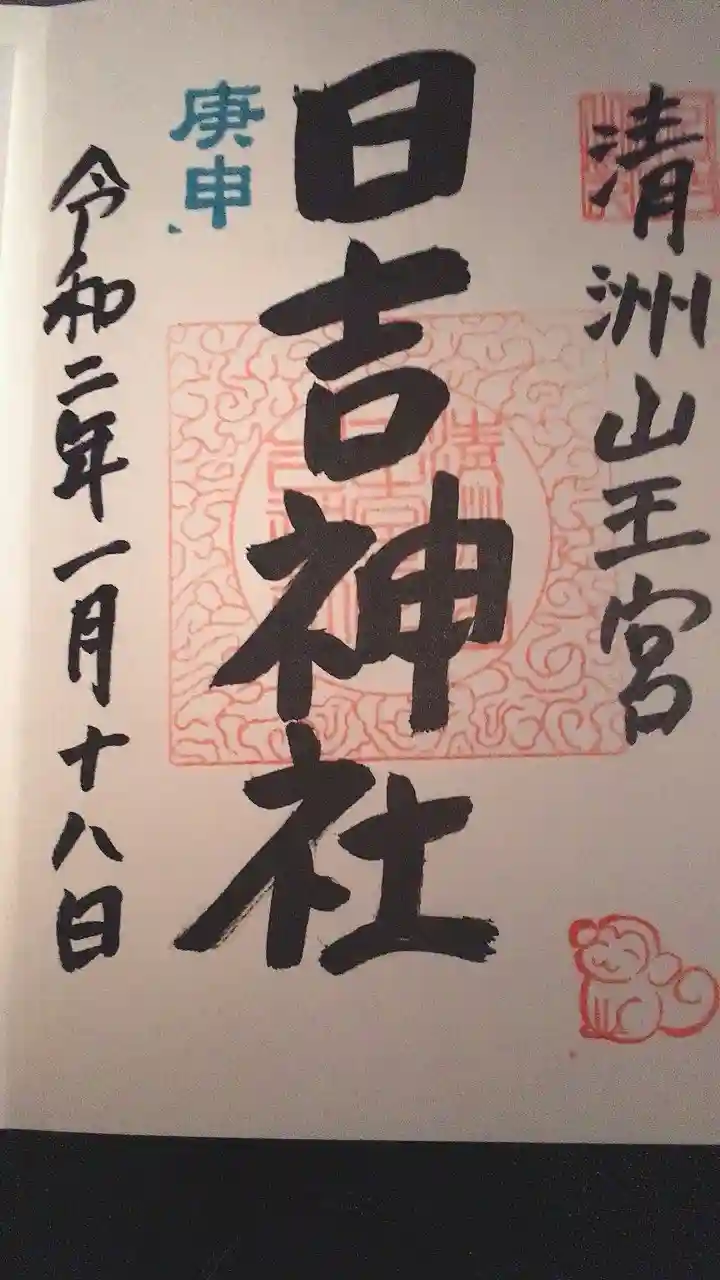 清洲山王宮
日吉神社
庚申
令和二年一月十八日